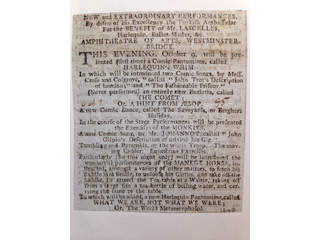 NEW and EXTRAORDINARY PERFORMANCES,
By desire of his Excellency the Turkish Ambassador
For the BENEFIT of Mr. LASCELLES,
Harlequin, Ballet-Master, &c
AMPHITHEATRE of ARTS, WESTMINSTER-
BRIDGE.
THIS EVENING, October 9, will be pre-
sented (first time) a Comic Pantomime, called
HARLEQUIN's WHIM.
In which will be introduced two Comic Songs, by Mess.
Cross and Cosgrove, called "John Trot's Description
of London" and "The Fashionable Friseur."
(Never performed) an entire new Burletta, called
THE COMET;
Or, A HINT FROM ÆSOP.
A new Comic Dance, called The Sawyards, or Beggars
Holiday.
In the course of the Stage Performances will be presented
the Exercises of the MONKIES.
A new Comic Song, by Mr. JOHANNOT, called "John
Gilpin's Description of driving his Gig"
Tumbling and Pyramids, by the whole Troop. The mo-
ving Ladder. Equestrian Exercises.
Particularly (for this night only) will be introduced the
wonderful performances of the MANEGE HORSE, in-
structed, among a variety of other matters, to fetch his
Saddle and Bridle, to unloose his Girths, and take off his
Saddle, to attend the Tea-table as a Waiter, taking off
from a large fire a tea Kettle of boiling water, and carry-
ing the same to the table.
To which will be added, a new Harlequin Pantomime, called
WHAT WE ARE, NOT WHAT WE WERE;
Or, The World Metamorphosed.